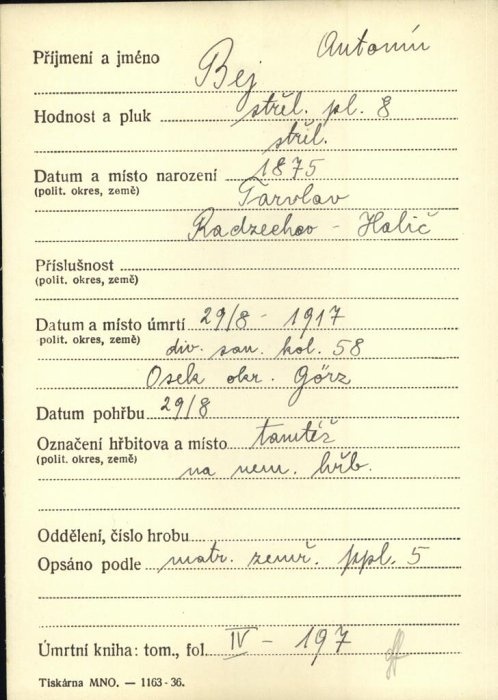 Příjmení a jméno Bej Antonín
Hodnost a pluk střel. pl. 8
střel.
Datum a místo narození 1875
(polit. okres, země) Tarvlav
Radzechov - Halič
Příslušnost
(polit. okres, země)
Datum a místo úmrtí 29/8 - 1917
polit. okres, země) div. san. kol. 58
Osek okr. Görz
Datum pohřbu 29/8
Označení hřbitova a místo tamtéž
(polit. okres, země) na nem. hřb.
Oddělení, číslo hrobu
Opsáno podle matr. zemř. ppl. 5
Úmrtní kniha: tom., fol. IV - 197
Tiskárna MNO. — 1163-36.